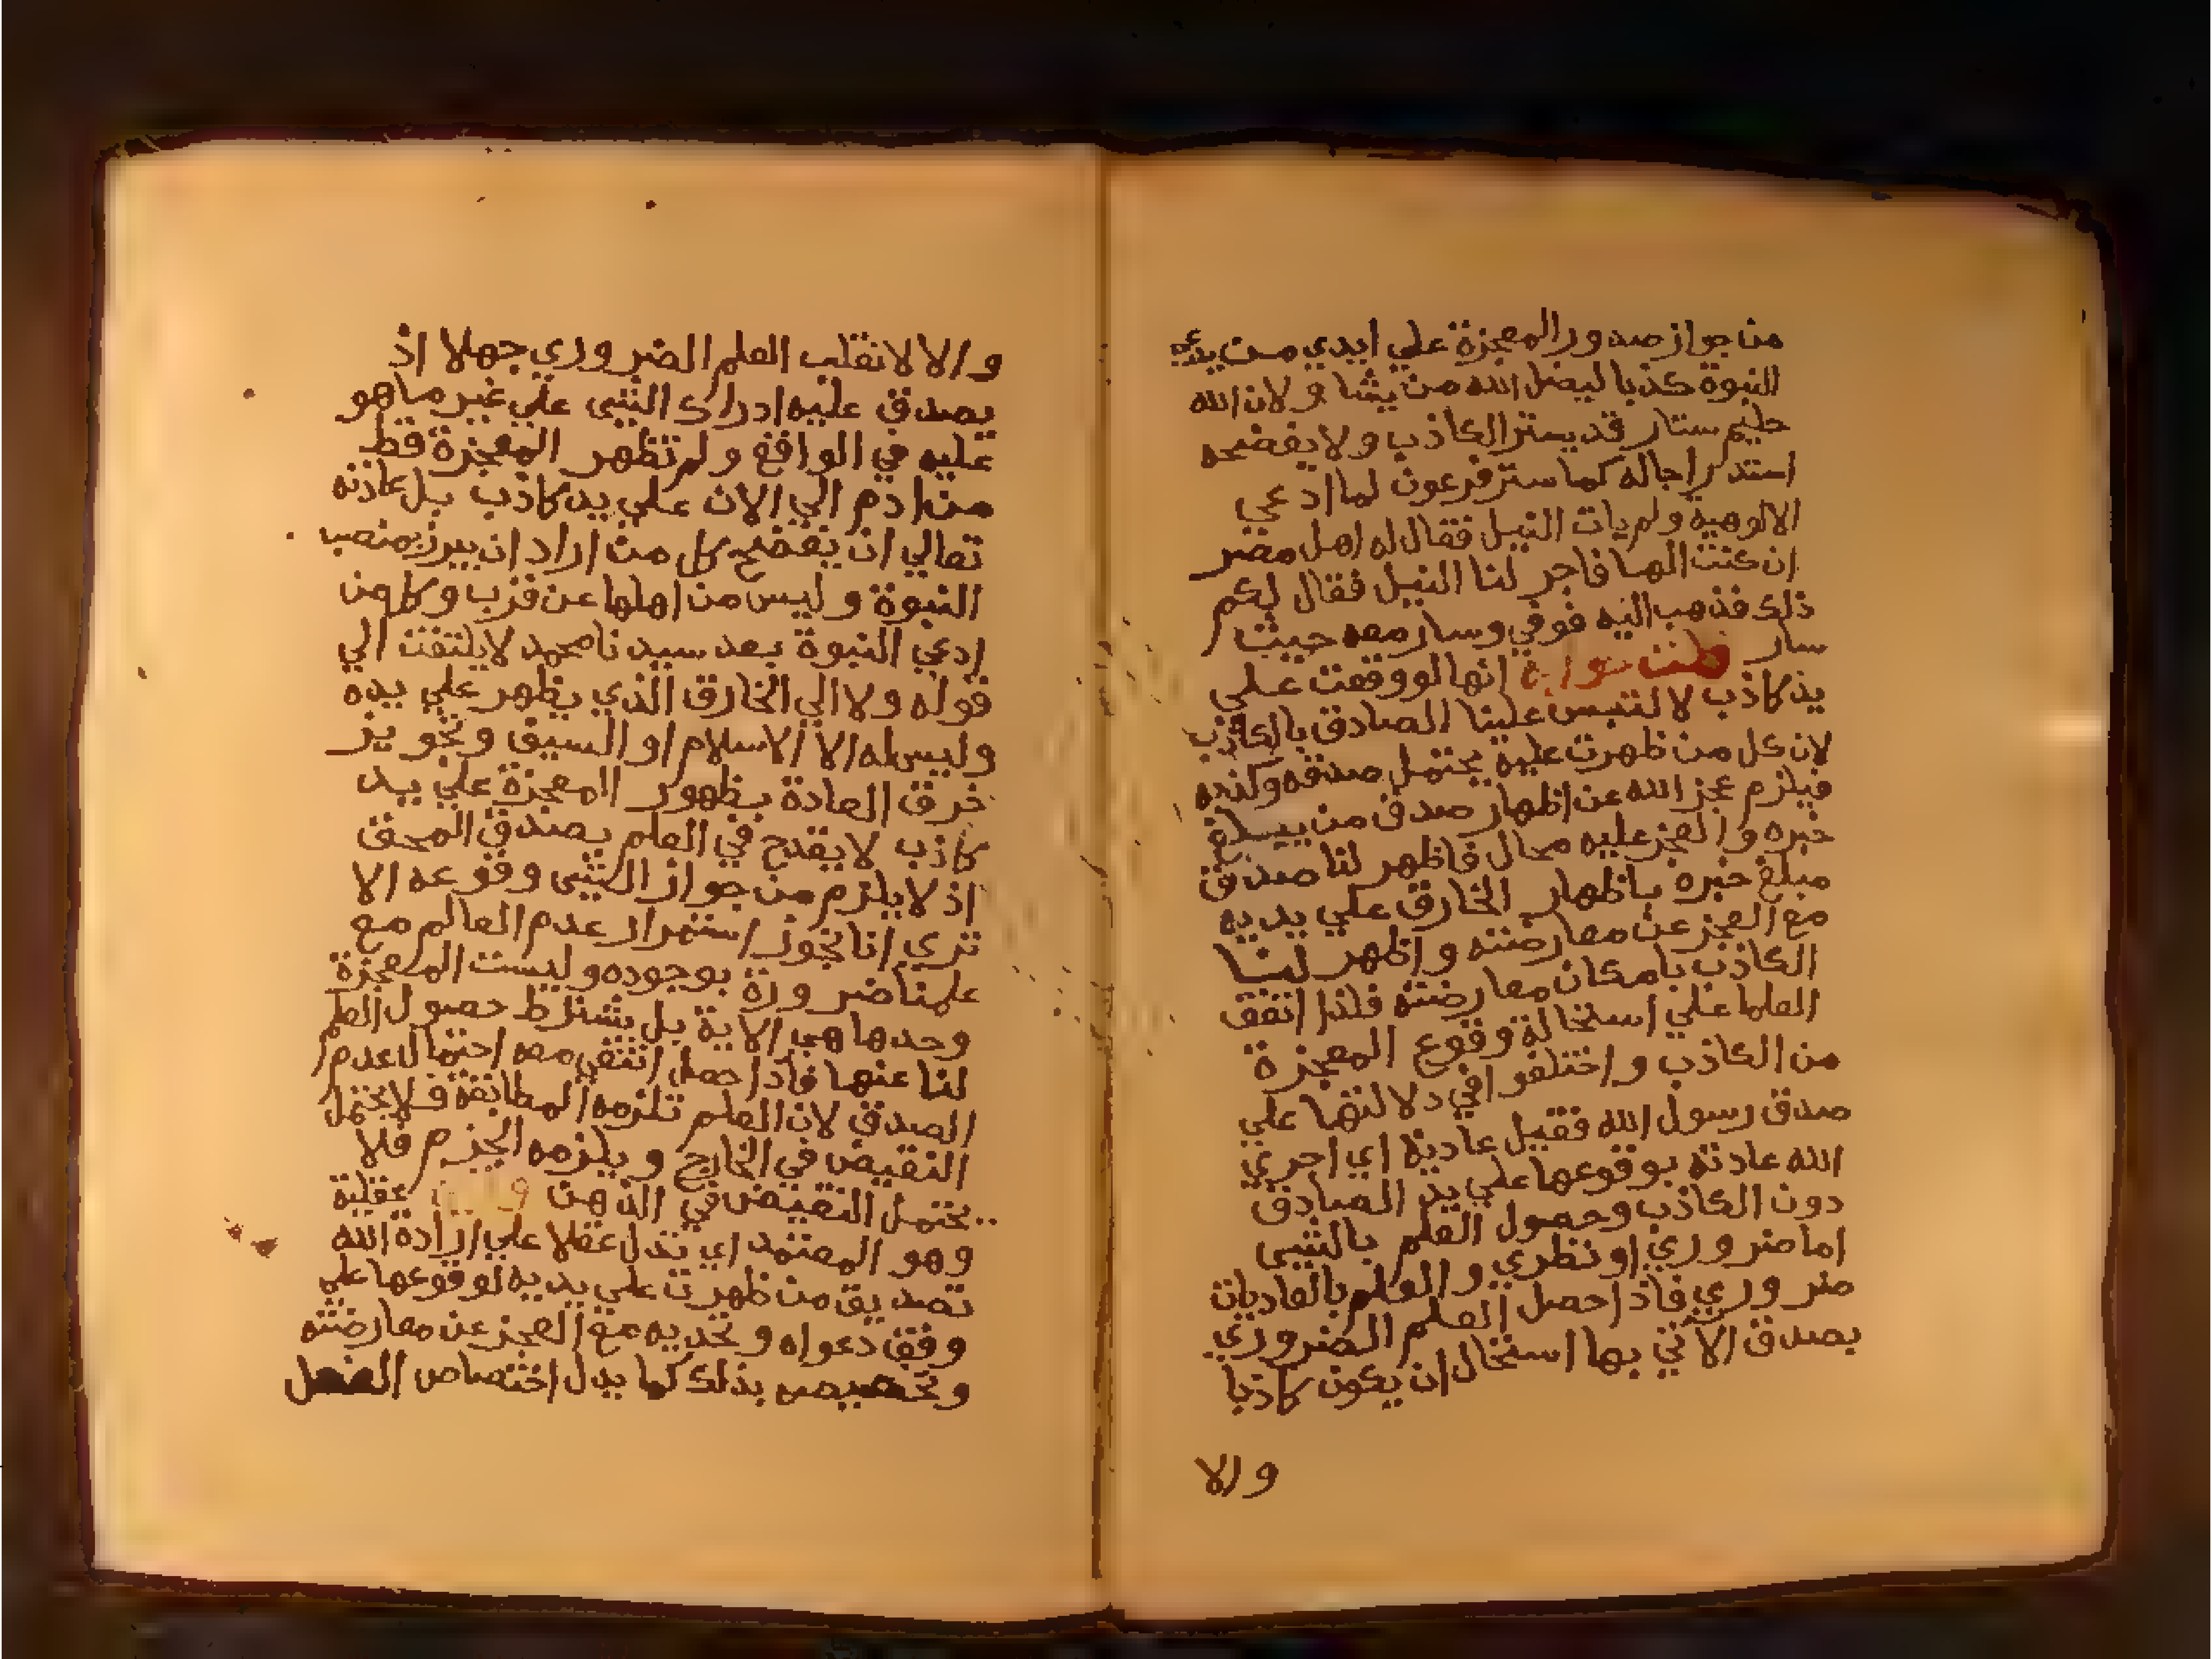 من جواز صدور المعجزة علي ايدي من يدعي
النبوة كذبا ليضل الله من يشا ولان الله
حليم ستار قد يستر الكاذب ولا يفضحه
استدراجاله كما ستر فرعون لما ادعي
الالوهية ولم يات النيل فقال له اهل مضر
ان كنت الها فاجر لنا النيل فقال لكم
ذلك فذهب اليه فوفي وسار معه حيث
سار قلت جوابه انها لو وقفت علي
يد كاذب لا لتبس علينا الصادق بالكاذب
لان كل من ظهرت عليه يحتمل صدقه وكذبه
فيلزم عجز الله عن اظهار صدق من يبلغ
خبره والعجز عليه محال فاظهر لنا صدق
مبلغ خبره باظهار الخارق علي يديه
مع العجز عن معارضته واظهر لنا
الكاذب بامكان معارضته فلذا اتفق
العلما علي استحالة وقوع المعجزة
من الكاذب واختلفوا في دلالتها علي
صدق رسول الله فقيل عادية اي اجري
الله عادته بوقوعها علي يد الصادق
دون الكاذب وحصول العلم بالشي
اما ضروري او نظري والعلم بالعاديات
ضروري فاذا حصل العلم الضروري
بصدق الاتي بها استحال ان يكون كاذبا
والا
والا لانقلب العلم الضروري جهلا اذ
يصدق عليه ادراك الشي علي غير ما هو
عليه في الواقع ولم تظهر المعجزة قط
من ادم الي الان علي يد كاذب بل عادته
تعالي ان يفضح كل من اراد ان يبرز بمنصب
النبوة وليس من اهلها عن قرب وكل من
ادعي النبوة بعد سيدنا محمد لا يلتفت الي
قوله ولا الي الخارق الذي يظهر علي يده
وليس له الا الاسلام او السيف وتجويز
خرق العادة بظهور المعجزة علي يد
كاذب لا يقدح في العلم بصدق المحق
اذ لا يلزم من جواز الشي وقوعه الا
تري انا نجوز استمرار عدم العالم مع
علمنا ضرورة بوجوده وليست المعجزة
وحدها هي الاية بل يشترط حصول العلم
لنا عنها فاذا حصل انتفي معه احتمال عدم
الصدق لان العلم تلزمه المطابقة فلا يحتمل
النقيض في الخارج ويلزمه الجزم فلا
يحتمل النقيض في الذهن عقلية
وهو المعتمد اي تدل عقلا علي ارادة الله
تصديق من ظهرت علي يديه لوقوعها علي
وفق دعواه وتحديه مع العجز عن معارضته
وتخصيصه بذلك كما يدل اختصاص الفعل